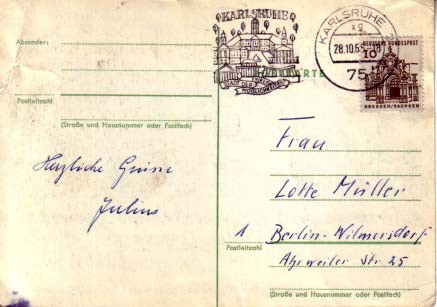 Absender:
Postleitzahl
(Straße und Hausnummer oder Postfach)
Herzliche Grüsse
Julius
KARLSRUHE
KARLSRUHE
xg
28.10.65
75
DEUTSCHE BUNDESPOST
10
DRESDEN/SACHSEN
Frau
Lotte Müller
1 Berlin-Wilmersdorf
Postleitzahl
Ahrweiler Str. 25
(Straße und Hausnummer oder Postfach)